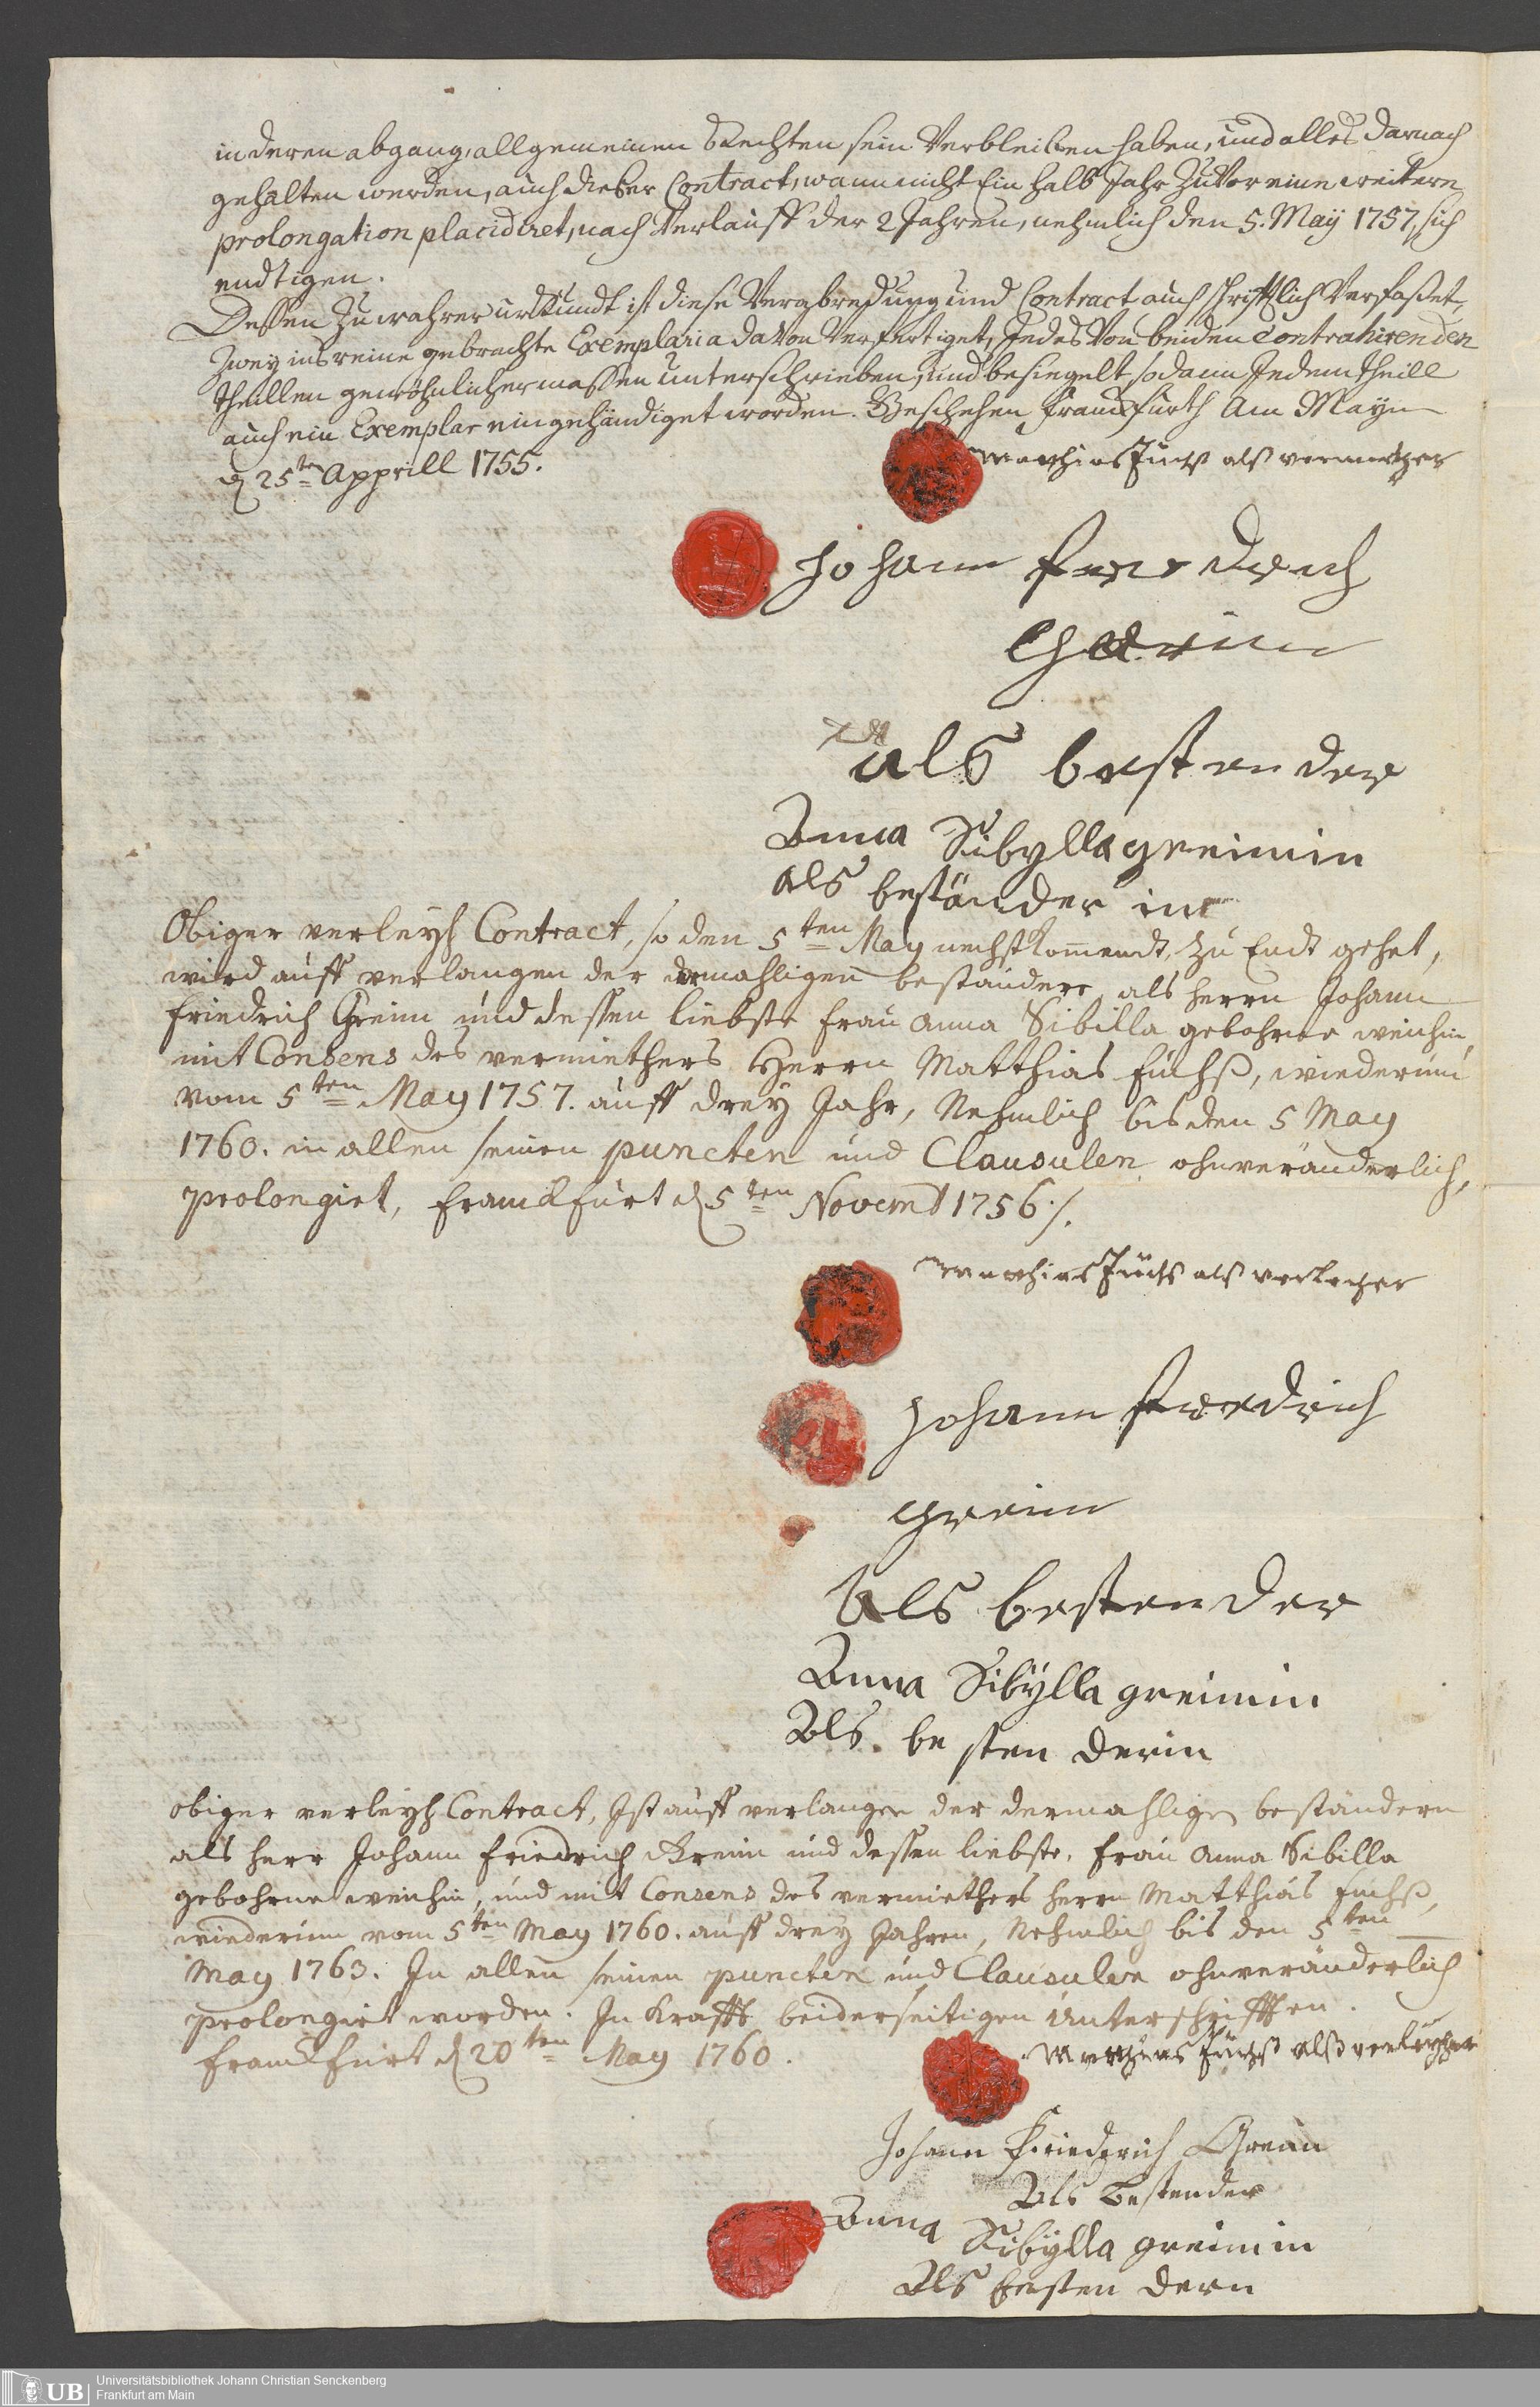 in deren abgang, allgemeinen Rechten sein Verbleiben haben, und alles darnach
gehalten werden, auch dießer Contract, wann nicht Ein halb Jahr zuvor eine weitere
prolongation placidiret, nach Verlauff der 2 Jahren, nehmlich den 5. Maÿ 1757, sich
endtigen.
Deßen zu wahrer urkundt ist diese Verabredung und Contract auch schrifftlich Verfaßet,
Zweÿ ins reine gebrachte Exemplaria davon Verfertiget, Jedes Von beiden Contrahirenden
theillen gewöhnlichermaßen unterschrieben, und besiegelt, sodann Jedem theill
auch ein Exemplar eingehändiget worden. Geschehen Franckfurth Am Maÿn
d 25ten Apprill 1755.
Matthias Fuchß alß vermether
Johann Friedrich
Greim
als bestender
Anna Sibylla greimin
als beständer in
Obiger verleyh Contract, so den 5ten May nechstkommendt, zu Endt gehet,
wird auff verlangen der dermahligen beständere als Herrn Johann
Friedrich Greim und dessen liebste Frau Anna Sibilla gebohrne weichin,
mit Consens des vermiethers Herrn Matthias Fuchß, wiederum
vom 5ten May 1757. auff dreÿ Jahr, Nehmlich bis den 5 May
1760. in allen seinen puncten und Clausulen ohnveränderlich,
prolongirt, Franckfurt d 5ten Novemb 1756 ./.
Matthias Füchß alß verleher
Johann Friedrich
Greim
Als bestender
Anna Sibÿlla greimin
Als besten derin
obiger verleyh Contract, Ist auff verlangen der dermahligen beständern
als Herr Johann Friedrich Greim und dessen liebste, Frau Anna Sibilla
gebohrne weichin, und mit Consens des vermiethers Herrn Matthias Fuchß,
wiederum vom 5ten May 1760. auff dreÿ Jahren, Nehmlich bis den 5ten
May 1763. In allen seinen puncten und Clausulen ohnveränderlich
prolongirt worden. In Krafft beiderseitigen Unterschrifften.
Franckfurt d 20ten May 1760.
Matthias Fuchß alß verleyher
Johann Friederich Greim
Als Bestender
Anna Sibÿlla greimin
Als besten dern
UB
Universitätsbibliothek Johann Christian Senckenberg
Frankfurt am Main